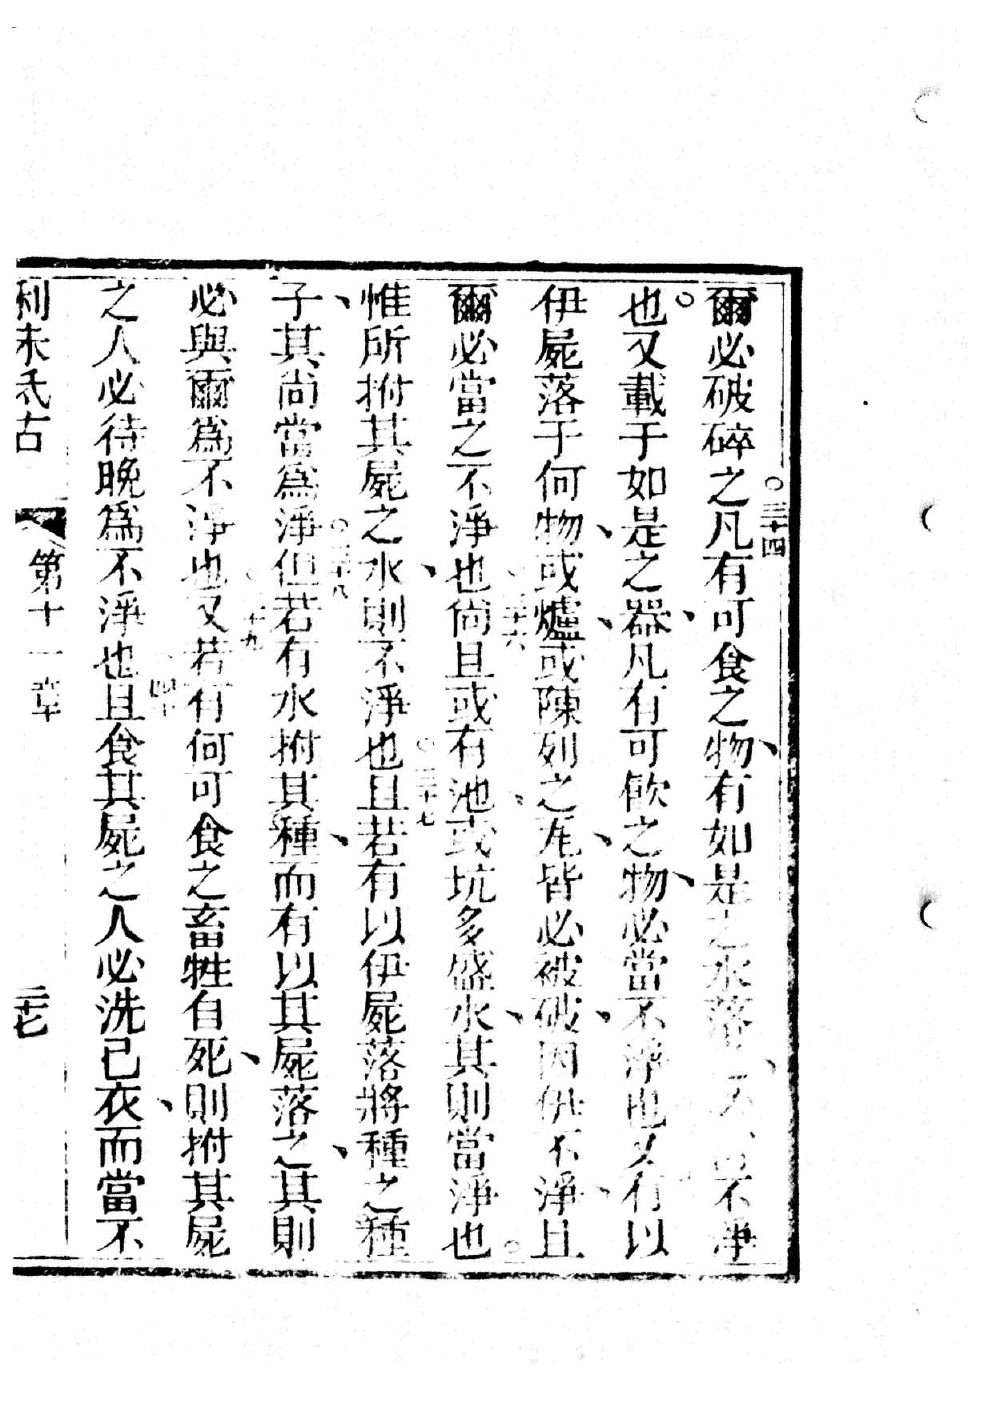 爾必破碎之○三十四凡有可食之物、有如是之水落、又、不淨
也○又載于如是之器、凡有可飮之物、必當不淨也又有以
伊屍落于何物、或爐、或陳列之㡯、皆必被破、因伊不淨、且
爾必當之不淨也○三十六尙且或有池、或坑多盛水、其則當淨也○
惟所拊其屍之水、則不淨也○三十七且若有以伊屍落將種之種
子、其尙當爲淨○三十八但若有水拊其種、而有以其屍落之、其則
必與爾爲不淨也○十九又若有何可食之畜牲自死、則拊其屍
之人必待晚爲不淨也四十且食其屍之人必洗己衣、而當不
利未氏古 第十一章 二七